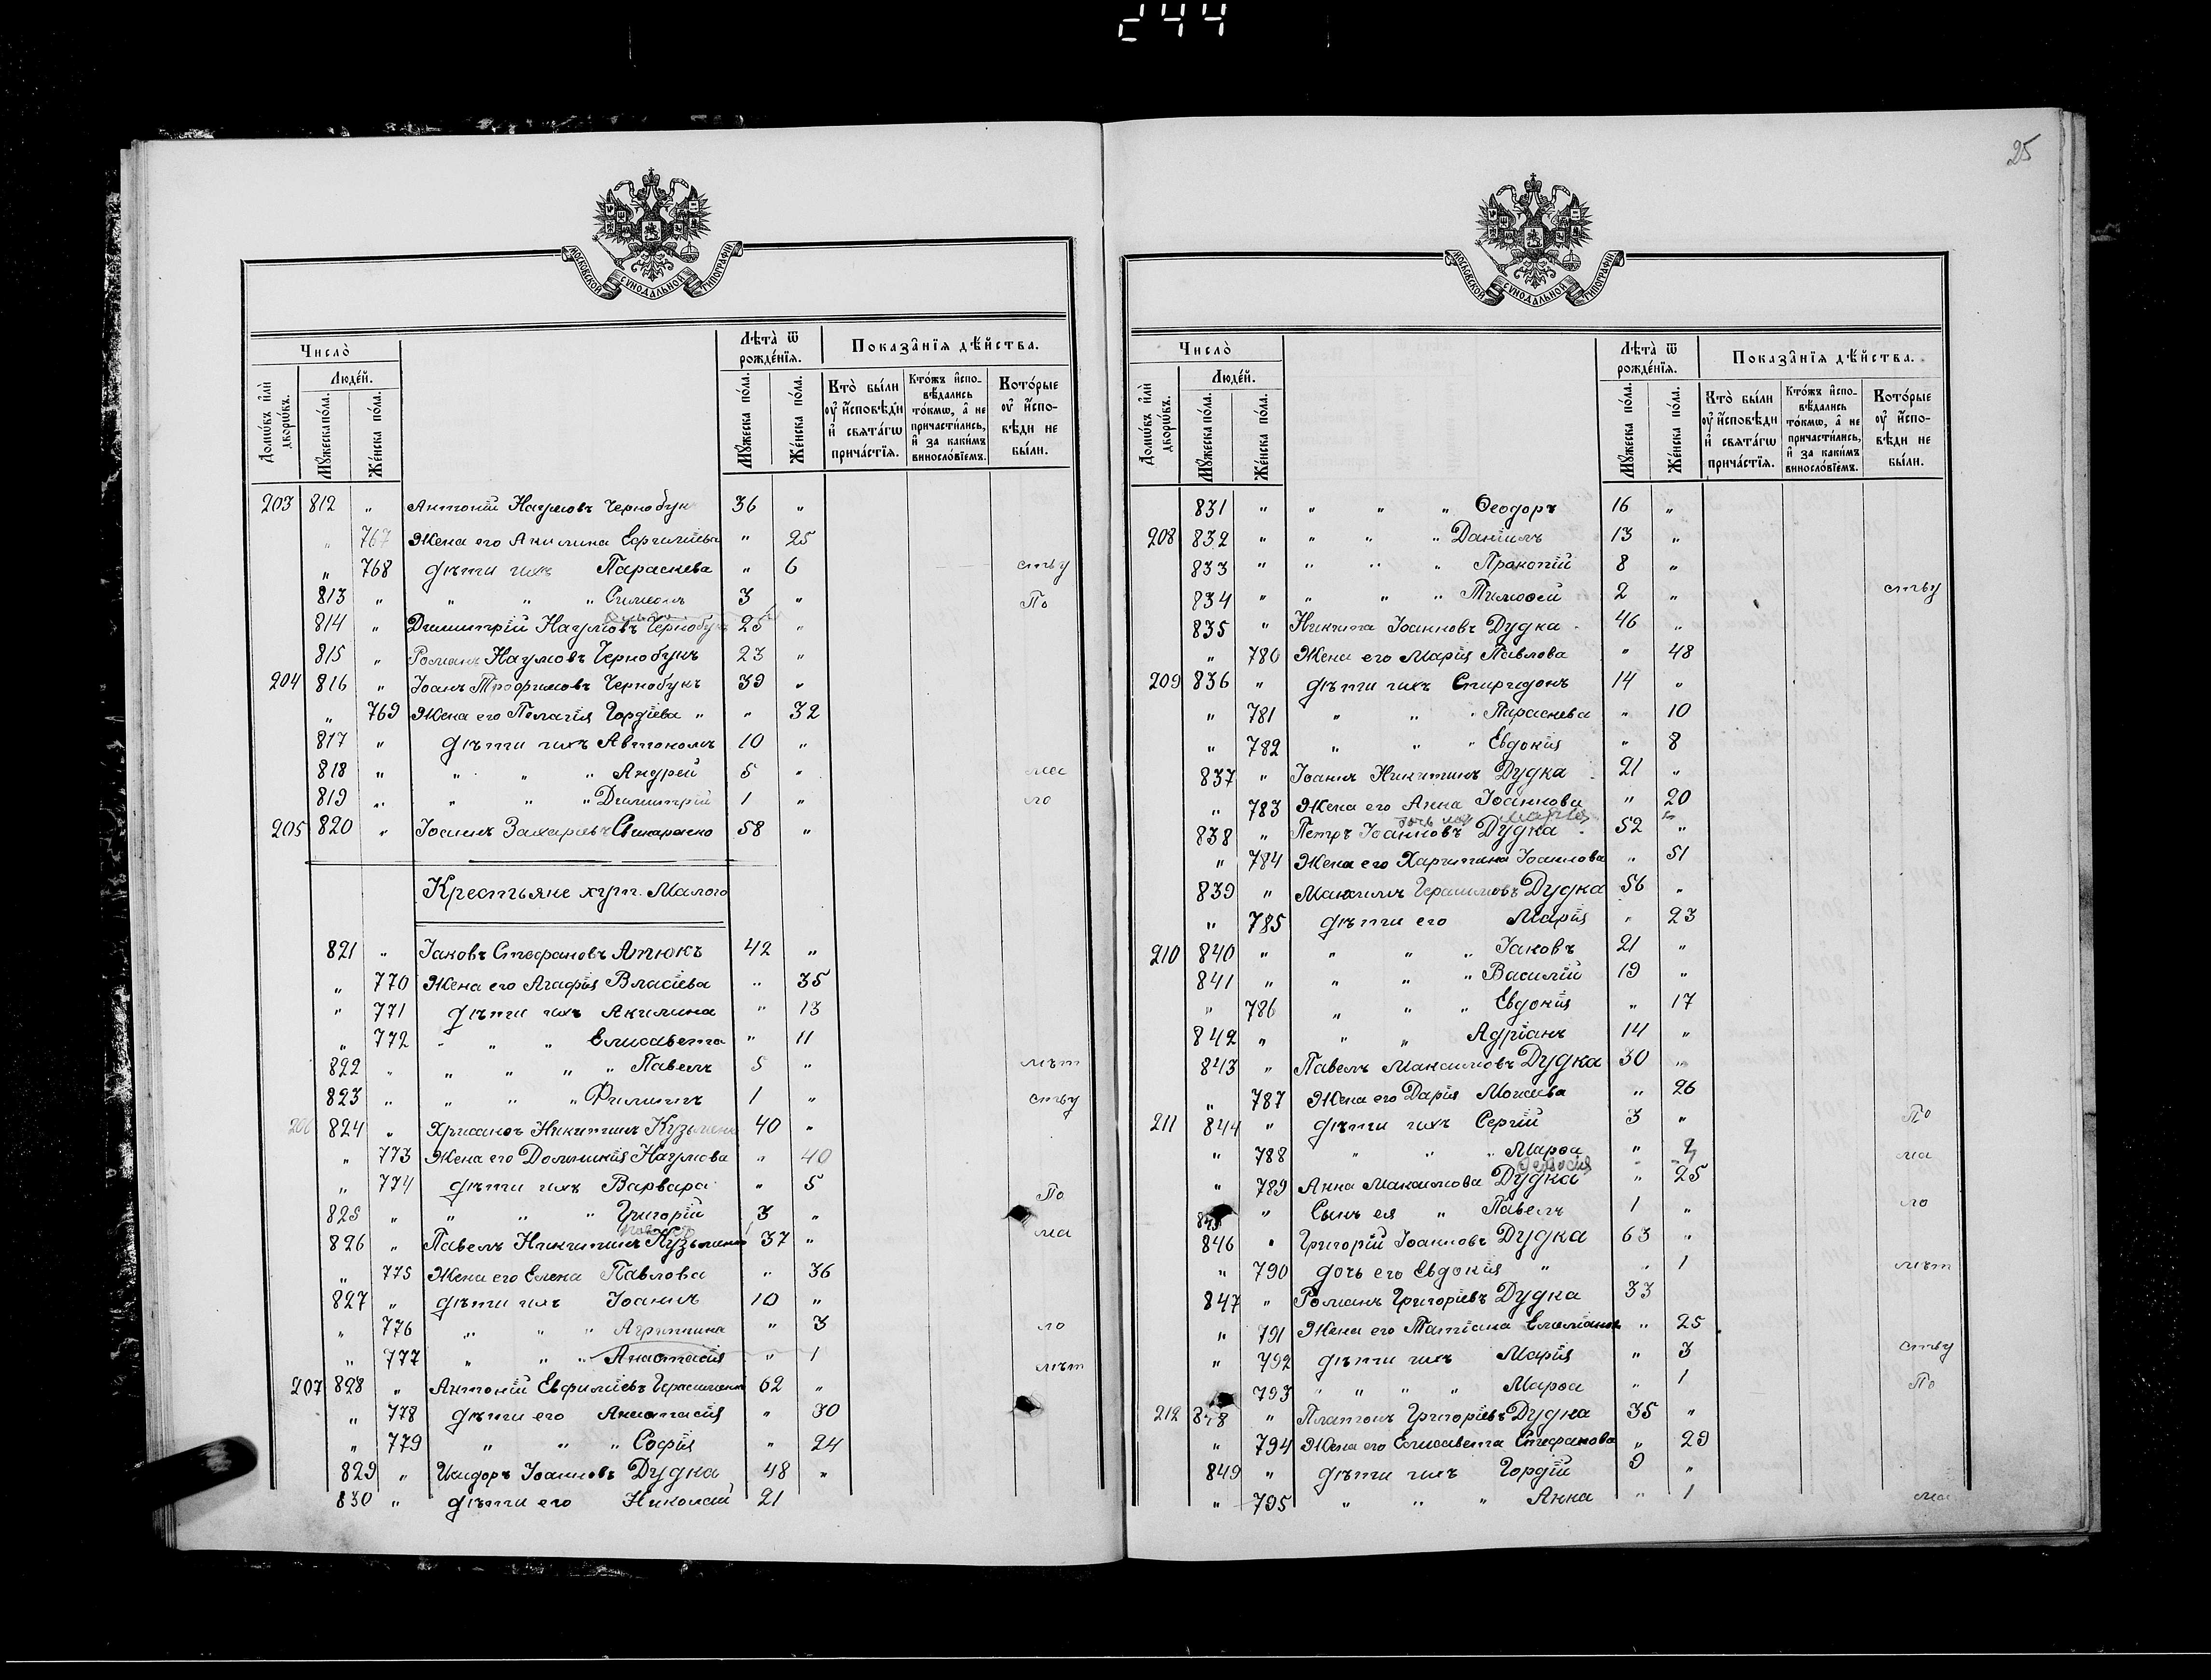 244
25
МОСКОВСКОЙ СѴНОДАЛЬНОЙ ТИПОГРАФІИ
Число̀
Людéй.
Домѡ́въ и҆лѝ дворѡ́въ.
Мꙋ́жеска по́ла.
Же́нска по́ла.
Лѣ́та ѿ рожде́нїѧ.
Мꙋ́жеска по́ла.
Же́нска по́ла.
Показа̑нїѧ дѣ́йства.
Кто̀ бы́ли оу҆ и҆сповѣ́ди и҆ свѧта́гѡ прича́стїѧ.
Кто́жъ и҆сповѣ́дались то́кмѡ, а҆ не причасти́лись, и҆ за каки́мъ винослові́емъ.
Кото́рые оу҆ и҆сповѣ́ди не бы́ли.
203 812 „ Антоній Наумовъ Чернобук 36 „
„ 767 Жена его Акилина Евфиміева „ 25
„ 768 дѣти ихъ Параскева „ 6 ству
813 „ „ „ „ Симеонъ 3 „ По
814 „ Димитрій Наумовъ Чернобукъ 25 „
815 „ Романъ Наумовъ Чернобукъ 23 „
204 816 „ Іоанъ Трофимовъ Чернобукъ 39 „
„ 769 Жена его Пелагія Гордіева „ „ 32
817 „ дѣти ихъ Автономъ 10 „
818 „ „ „ „ Андрей 5 „ ма
819 „ „ „ „ Димитрій 1 „ ло
205 820 „ Іоаннъ Захаріевъ Свинаренко 58 „
Крестьяне хут. Малого
821 „ Іаковъ Стефановъ Апюкъ 42 „
„ 770 Жена его Агафія Власіева „ 35
„ 771 дѣти ихъ Акилина „ 13
„ 772 „ „ „ Елисавета „ 11
822 „ „ „ „ „ Павелъ 5 „ лѣт
823 „ „ „ „ Филиппъ 1 „ ству
206 824 „ Хрисанѳъ Никитинъ Кузьменко 40 „
„ 773 Жена его Домникія Наумова „ 40
„ 774 дѣти ихъ Варвара „ 5 По
825 „ „ „ „ Григорій 3 „
826 „ Павелъ Никитинъ Кузьменко 37 „ ма
„ 775 Жена его Елена Павлова „ 36
827 „ дѣти ихъ Іоаннъ 10 „
„ 776 „ „ „ Агрипина „ 3 ло
„ 777 „ „ „ Анастасія „ 1 лѣт
207 828 „ Антоній Евфиміевъ Герасименко 62 „
„ 778 дѣти его Анастасія „ 30
„ 779 „ „ „ Софія „ 24
829 „ Исидоръ Іоанновъ Дудка 48 „
830 „ дѣти его Николай 21
МОСКОВСКОЙ СѴНОДАЛЬНОЙ ТИПОГРАФІИ
Число̀
Людéй.
Домѡ́въ и҆лѝ дворѡ́въ.
Мꙋ́жеска по́ла.
Же́нска по́ла.
Лѣ́та ѿ рожде́нїѧ.
Мꙋ́жеска по́ла.
Же́нска по́ла.
Показа̑нїѧ дѣ́йства.
Кто̀ бы́ли оу҆ и҆сповѣ́ди и҆ свѧта́гѡ прича́стїѧ.
Кто́жъ и҆сповѣ́дались то́кмѡ, а҆ не причасти́лись, и҆ за каки́мъ винослові́емъ.
Кото́рые оу҆ и҆сповѣ́ди не бы́ли.
831 „ „ „ „ Ѳеодоръ 16 „
208 832 „ „ „ „ Даніилъ 13 „
833 „ „ „ „ Прокопій 8 „
834 „ „ „ „ Тимоѳей 2 „ ству
835 „ Никита Іоанновъ Дудка 46 „
„ 780 Жена его Марія Павлова „ 48
209 836 „ дѣти ихъ Спиридонъ 14 „
„ 781 „ „ „ Параскева „ 10
„ 782 „ „ „ Евдокія „ 8
837 „ Іоаннъ Никитинъ Дудка 21 „
„ 783 Жена его Анна Іоаннова „ 20
дочь их Марія
838 „ Петръ Іоанновъ Дудка 52 „
„ 784 Жена его Харитина Іоаннова „ 51
839 „ Максимъ Герасимовъ Дудка 56 „
„ 785 дѣти его Марія „ 23
210 840 „ „ „ „ Іаковъ 21 „
841 „ „ „ „ Василій 19 „
„ 786 „ „ „ Евдокія „ 17
842 „ „ „ Адріанъ 14 „
843 „ Павелъ Максимовъ Дудка 30 „
„ 787 Жена его Дарія Моисеева „ 26
211 844 „ дѣти ихъ Сергій 3 „ По
„ 788 „ „ „ Марѳа „ 2 ма
„ 789 Анна Максимова Дудка „ 25
845 „ Сынъ ея „ Павелъ 1 „ ло
846 „ Григорій Іоанновъ Дудка 63 „
„ 790 дочь его Евдокія „ „ 1 лѣт
847 „ Романъ Григоріевъ Дудка 33
„ 791 Жена его Татіана Емиліанова „ 25
„ 792 дѣти ихъ Марія „ 3 ству
793 „ „ „ „ Марѳа „ 1 По
212 848 „ Платонъ Григоріевъ Дудка 35 „
„ 794 Жена его Елисавета Стефанова „ 29
849 „ дѣти ихъ Гордій 9 „
„ 795 „ „ „ Анна „ 1 ма